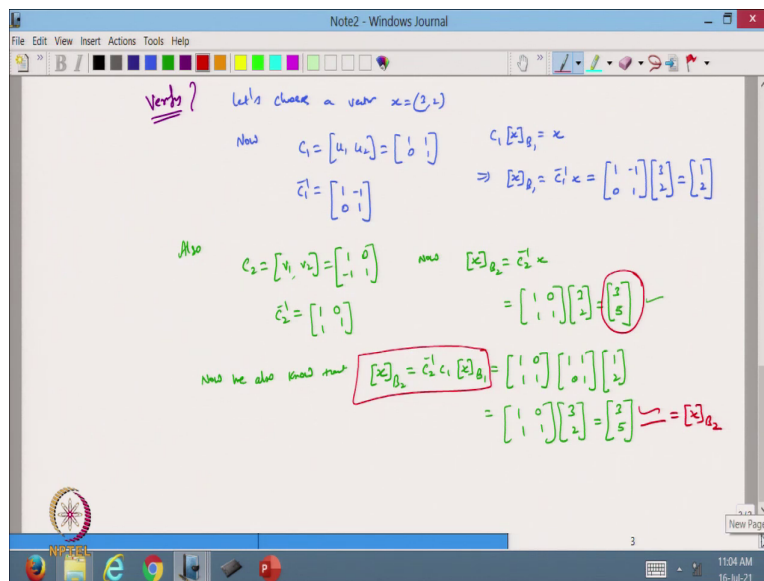 Note2 - Windows Journal
File Edit View Insert Actions Tools Help
Verify? Let's choose a vector x=(3,2)
Now C₁ = [u₁, u₂] = [1 1; 0 1] C₁[x]_B₁ = x
C₁⁻¹ = [1 -1; 0 1] ⇒ [x]_B₁ = C₁⁻¹ x = [1 -1; 0 1] [3; 2] = [1; 2]
Also C₂ = [v₁, v₂] = [1 0; -1 1] Now [x]_B₂ = C₂⁻¹ x
C₂⁻¹ = [1 0; 1 1] = [1 0; 1 1] [3; 2] = [3; 5] ✓
Now we also know that [x]_B₂ = C₂⁻¹ C₁ [x]_B₁ = [1 0; 1 1] [1 1; 0 1] [1; 2]
= [1 0; 1 1] [3; 2] = [3; 5] ✓ = [x]_B₂
NPTEL
3
New Page
11:04 AM
16-Jul-21